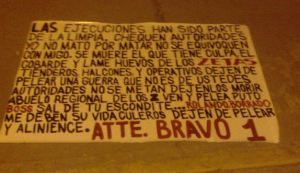 LAS EJECUCIONES HAN SIDO PARTE
DE LA LIMPIA, CHEQUEN AUTORIDADES
YO NO MATO POR MATAR NO SE EQUIVOQUEN
CON MIGO. SE MUERE EL QUE TIENE CULPA EL
COBARDE Y LAME HUEVOS DE LOS ZETAS
TIENDEROS, HALCONES, Y OPERATIVOS DEJEN DE
PELEAR UNA GUERRA QUE NO ES DE USTEDES
AUTORIDADES NO SE METAN DEJENLOS MORIR
ABUELO REGIONAL DE LOS Z VEN Y PELEA PUTO
BOSS SAL DE TU ESCONDITE... ROLANDO, BORRADO
ME DEBEN SU VIDA CULEROS DEJEN DE PELEAR
Y ALINIENCE. ATTE. BRAVO 1